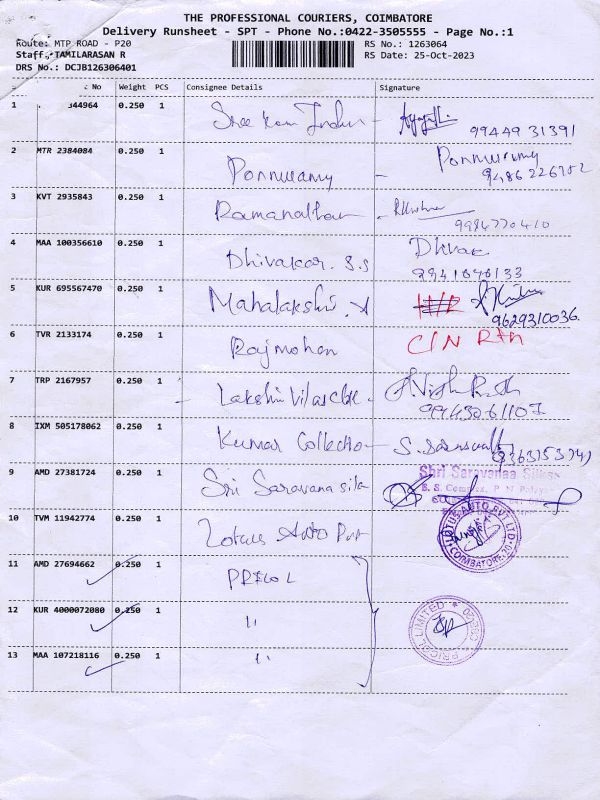 THE PROFESSIONAL COURIERS, COIMBATORE
Delivery Runsheet - SPT - Phone No.:0422-3505555 - Page No.:1
Route: MTP ROAD - P20
RS No.: 1263064
Staff: TAMILARASAN R
RS Date: 25-Oct-2023
DRS No.: DCJB126306401
No Weight PCS Consignee Details Signature
1 344964 0.250 1 Sree
99449 31391
2 MTR 2384084 0.250 1 Ponnusamy - Ponnusamy
3 KVT 2935843 0.250 1 Ramanathan
9984770410
4 MAA 100356610 0.250 1 Dhivakar. S.S
5 KUR 695567470 0.250 1 Mahalakshi
9629310036
6 TVR 2133174 0.250 1 Rajmohan C/N Rtn
7 TRP 2167957 0.250 1 - Lakshmi Vilas
8 IXM 505178062 0.250 1 Kumar Collection - S.
9 AMD 27381724 0.250 1 Sri Saravana Silk
Shri Saravanaa
10 TVM 11942774 0.250 1 Lotus Auto Pvt
LOTUS AUTO PVT LTD
COIMBATORE-20
11 AMD 27694662 0.250 1 PRICOL
12 KUR 4000072080 0.250 1 "
PRICOL LIMITED
13 MAA 107218116 0.250 1 "